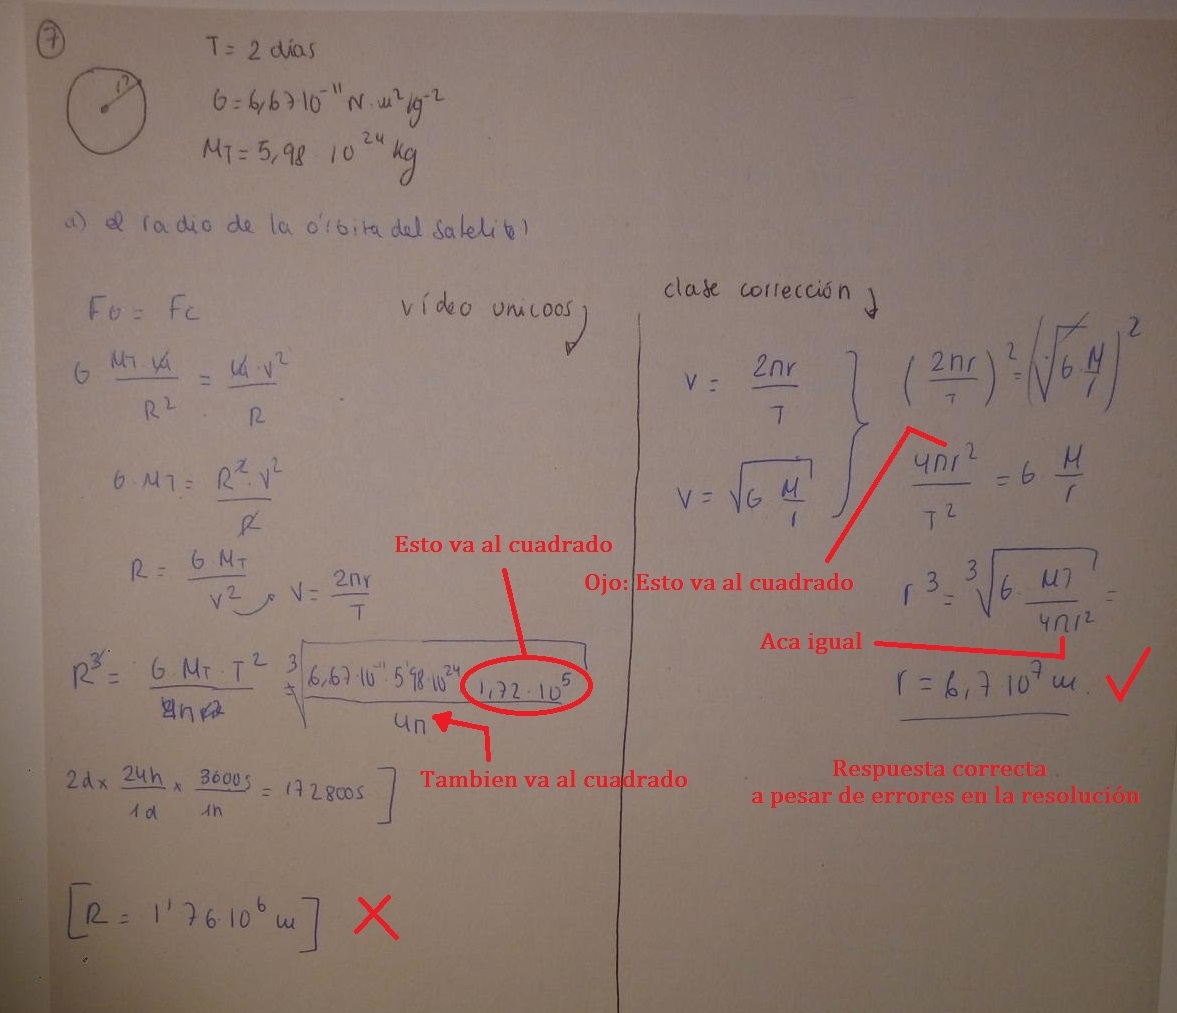 7
T = 2 días
r?
G = 6,67 10⁻¹¹ N·m² kg⁻²
M_T = 5,98 10²⁴ kg
a) el radio de la órbita del satelite)
vídeo unicoos
F_G = F_C
G M_T · m / R² = m · v² / R
G · M_T = R² · v² / R
R = G M_T / v²
v = 2πr / T
Esto va al cuadrado
R³ = G · M_T · T² / 4π = ³√(6,67·10⁻¹¹ 5'98·10²⁴ 1,72·10⁵ / 4π)
Tambien va al cuadrado
2d × 24h / 1d × 3600s / 1h = 172800s ]
[R = 1'76·10⁶ m] X
clase corrección
v = 2πr / T
v = √(G M / r)
(2πr / T)² = (√(G · M / r))²
4πr² / T² = G · M / r
Ojo: Esto va al cuadrado
r³ = ³√(G · MT / 4πr²) =
Aca igual
r = 6,7 10⁷ m. ✓
Respuesta correcta
a pesar de errores en la resolución